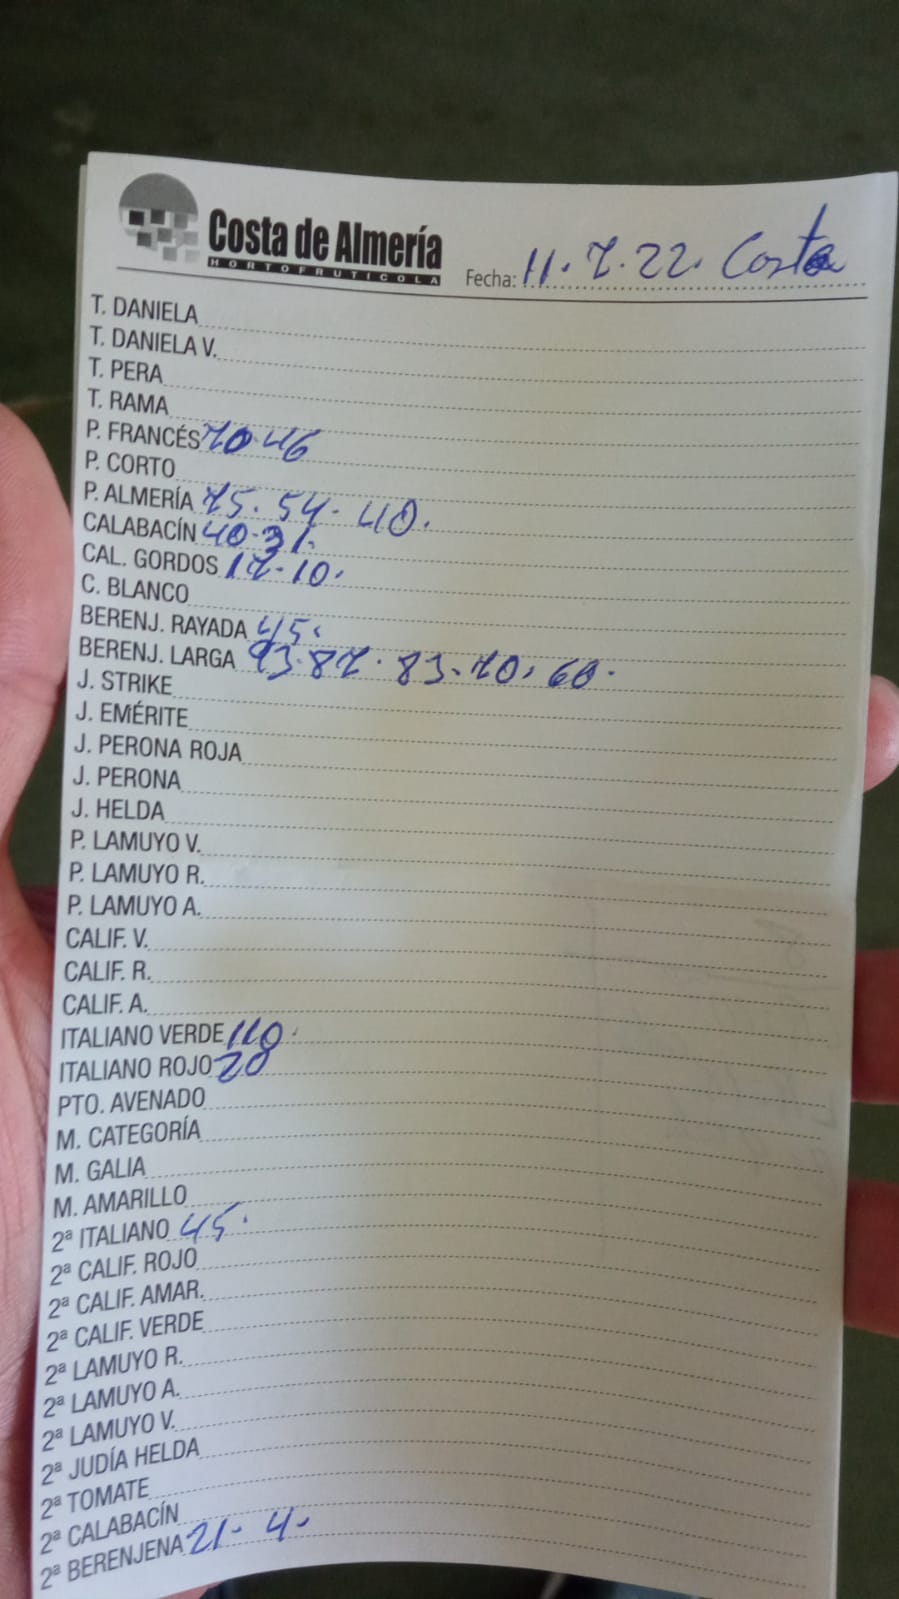 Costa de Almería
HORTOFRUTICOLA
Fecha: 11. 7. 22. Costa
T. DANIELA
T. DANIELA V.
T. PERA
T. RAMA
P. FRANCÉS 70-46
P. CORTO
P. ALMERÍA 75. 54. 40.
CALABACÍN 40-31.
CAL. GORDOS 17-10.
C. BLANCO
BERENJ. RAYADA 45.
BERENJ. LARGA 93-87. 83. 70. 60.
J. STRIKE
J. EMÉRITE
J. PERONA ROJA
J. PERONA
J. HELDA
P. LAMUYO V.
P. LAMUYO R.
P. LAMUYO A.
CALIF. V.
CALIF. R.
CALIF. A.
ITALIANO VERDE 110.
ITALIANO ROJO 20
PTO. AVENADO
M. CATEGORÍA
M. GALIA
M. AMARILLO
2ª ITALIANO 45.
2ª CALIF. ROJO
2ª CALIF. AMAR.
2ª CALIF. VERDE
2ª LAMUYO R.
2ª LAMUYO A.
2ª LAMUYO V.
2ª JUDÍA HELDA
2ª TOMATE
2ª CALABACÍN
2ª BERENJENA 21. 4.